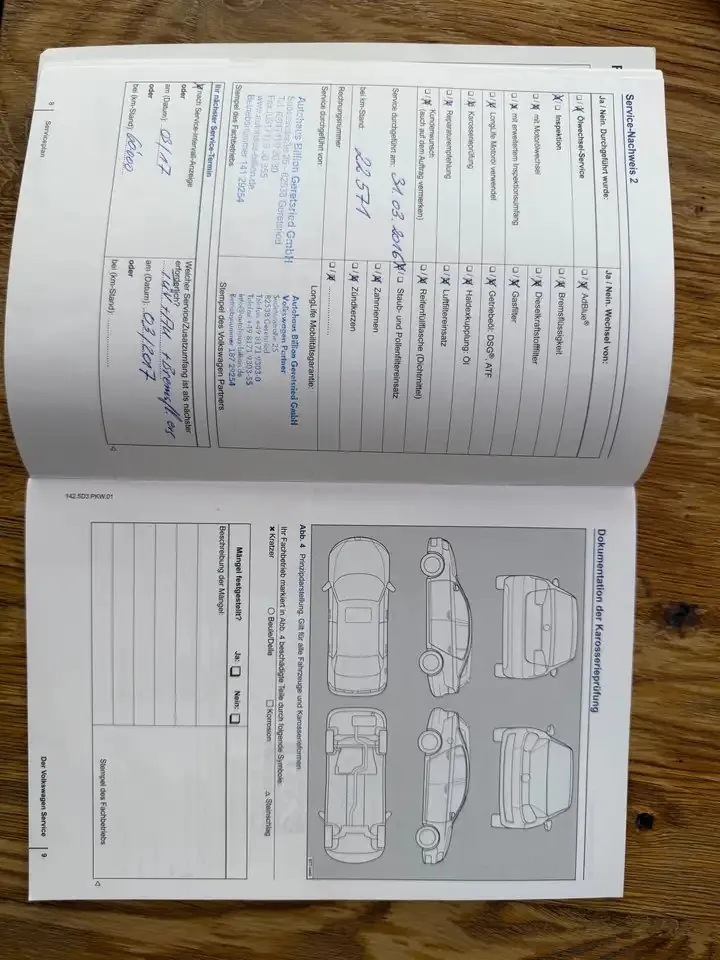 Service-Nachweis 2
Ja / Nein. Durchgeführt wurde:
Ölwechsel-Service
Inspektion
mit Motorölwechsel
mit erweitertem Inspektionsumfang
LongLife Motoröl verwendet
Karosserieprüfung
Reparaturempfehlung
Kundenwunsch
(auch auf den Auftrag vermerken)
Service durchgeführt am: 31.03.2016
bei km-Stand: 22 571
Rechnungsnummer
Service durchgeführt von:
Autohaus Billion Geretsried GmbH
82538 Geretsried
Stempel des Fachbetriebs
Ja / Nein. Wechsel von:
AdBlue®
Bremsflüssigkeit
Dieselkraftstofffilter
Gasfilter
Getriebeöl: DSG® ATF
Haldexkupplung: Öl
Luftfiltereinsatz
Reifenfüllflasche (Dichtmittel)
Staub- und Pollenfiltereinsatz
Zahnriemen
Zündkerzen
LongLife Mobilitätsgarantie:
Autohaus Billion Geretsried GmbH
Volkswagen Partner
82538 Geretsried
Telefon +49 8171 9303-0
Telefax +49 8171 9303-55
Stempel des Volkswagen Partners
Ihr nächster Service-Termin
nach Service-Intervall-Anzeige
oder
am (Datum): 03/17
oder
bei (km-Stand):
Welcher Service/Zusatzumfang ist als nächster
erforderlich?
am (Datum): 03/2017
oder
bei (km-Stand):
8
Serviceplan
142.5D3.PKW.01
Dokumentation der Karosserieprüfung
Abb. 4 Prinzipdarstellung. Gilt für alle Fahrzeuge und Karosserieformen
Ihr Fachbetrieb markiert in Abb. 4 beschädigte Teile durch folgende Symbole:
Kratzer
Beule/Delle
Korrosion
Steinschlag
Mängel festgestellt? Ja: Nein:
Beschreibung der Mängel:
Stempel des Fachbetriebs
Der Volkswagen Service
9